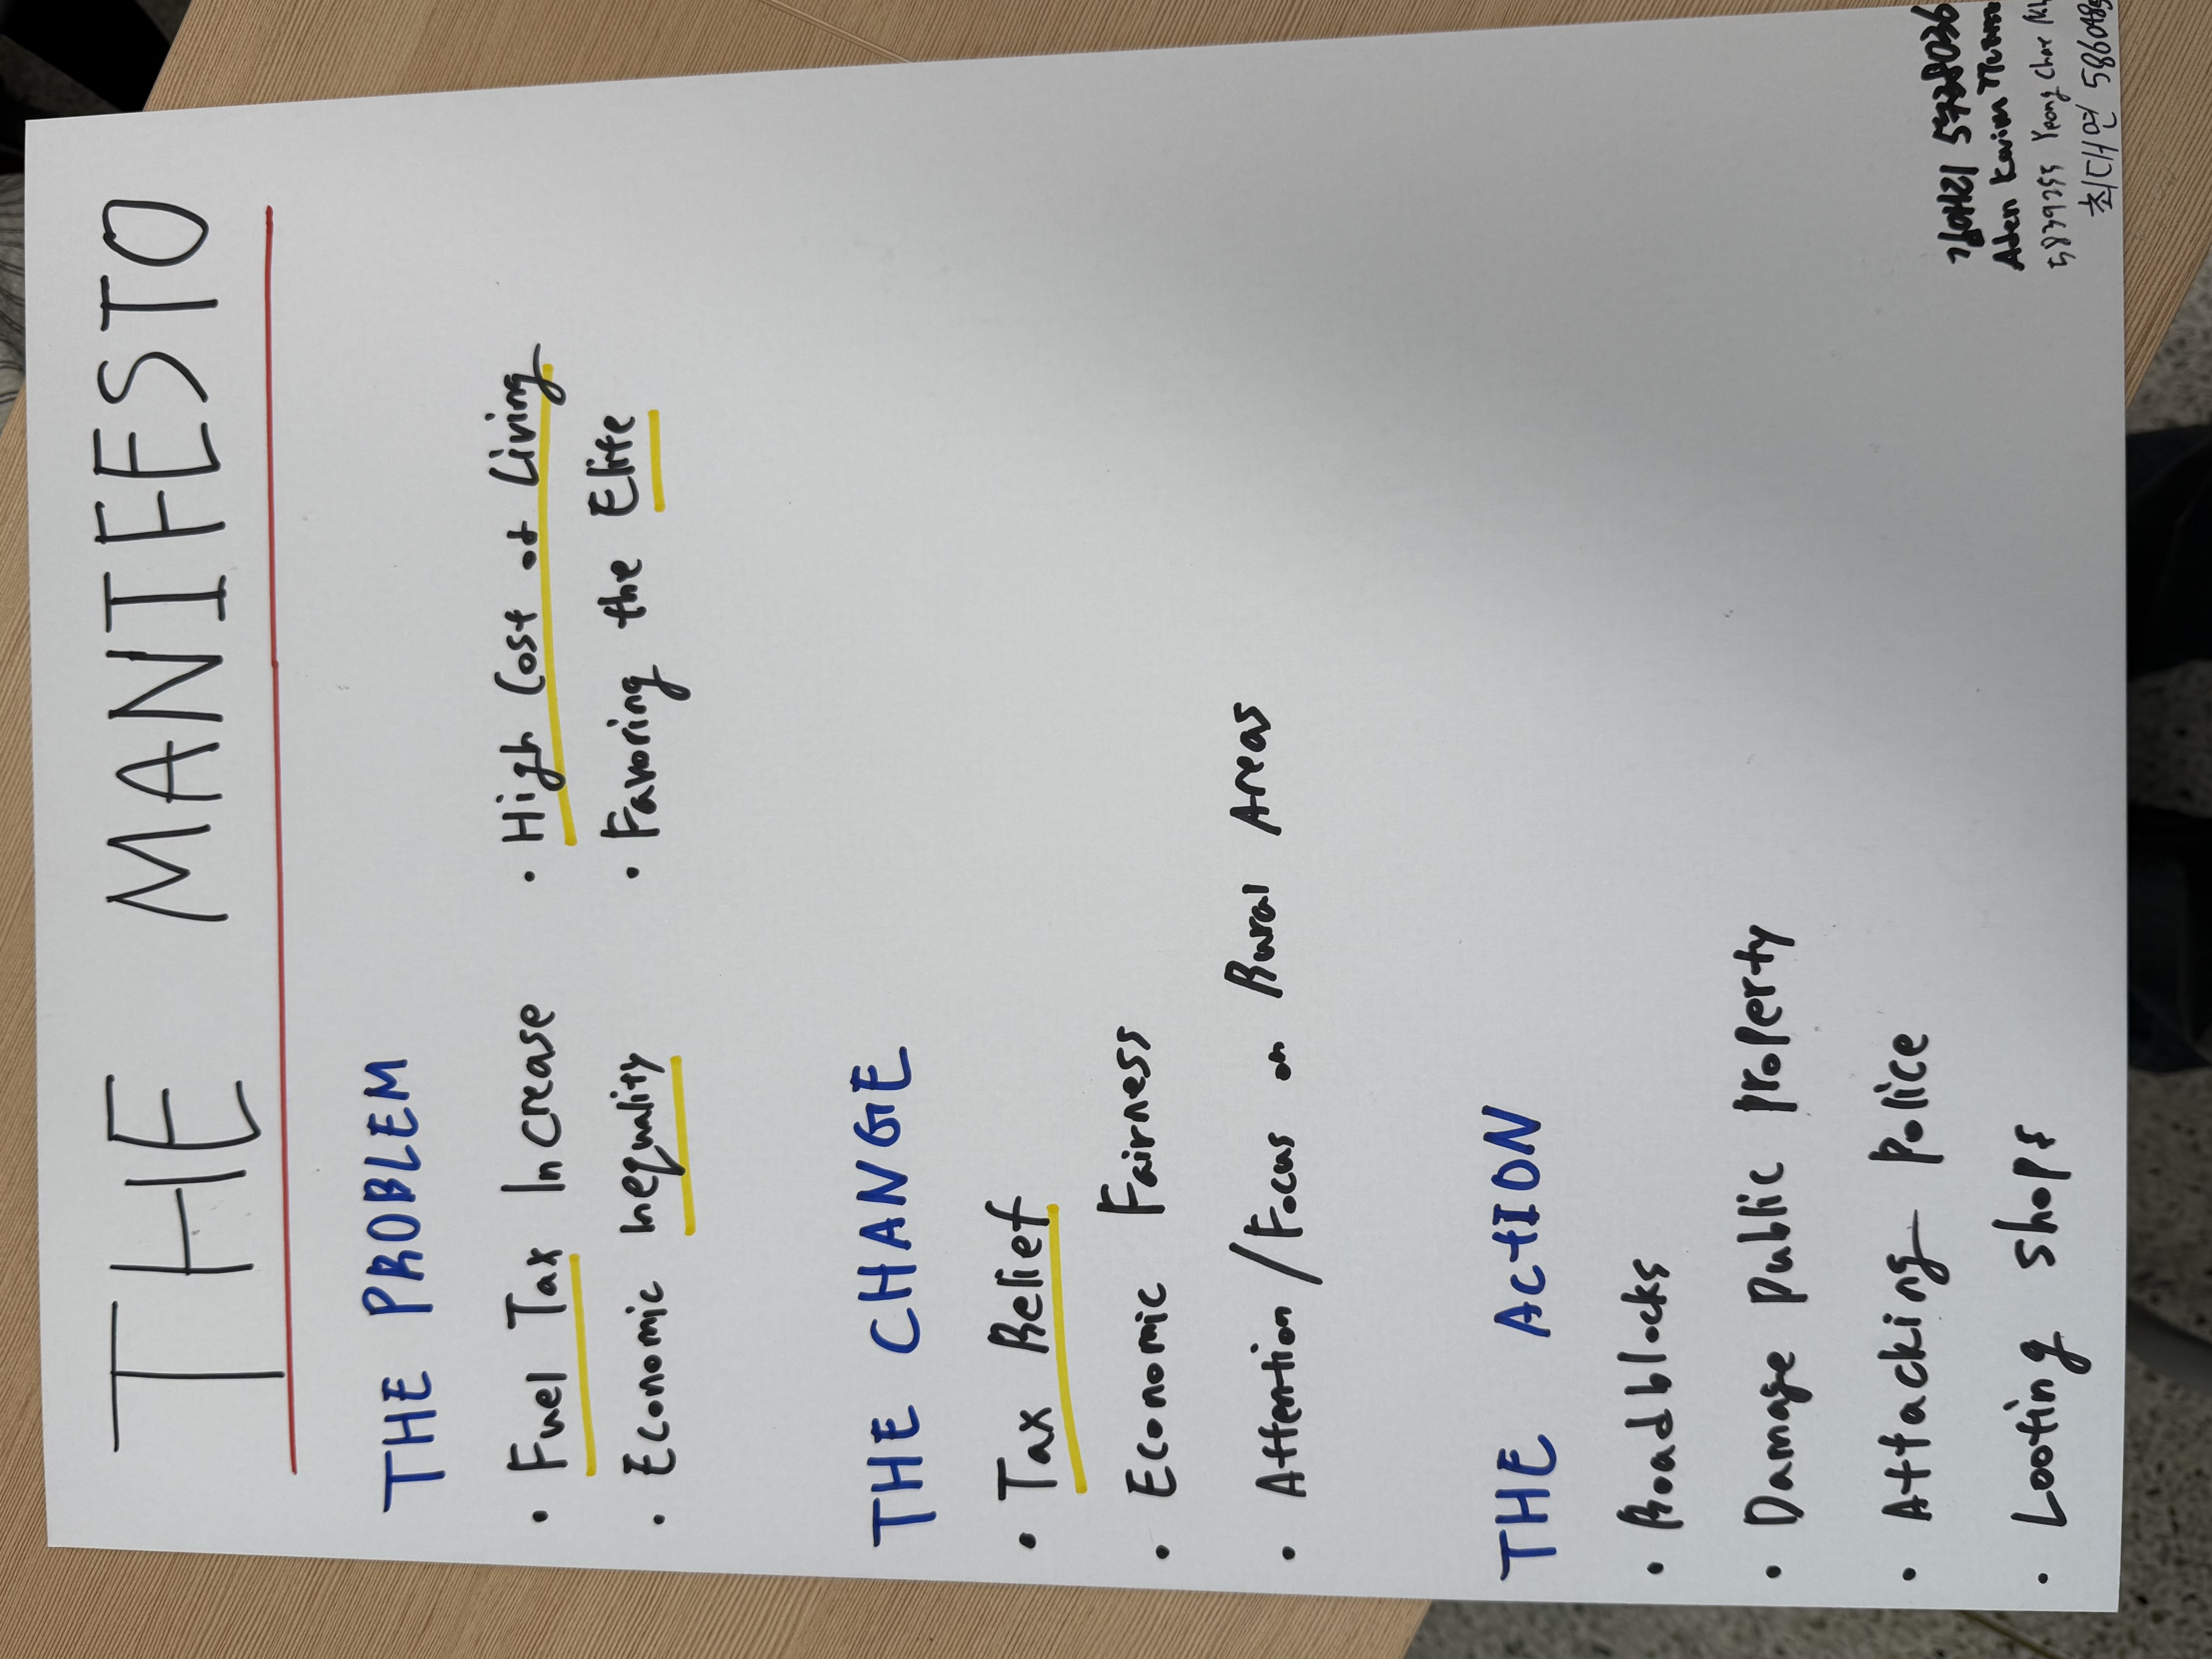 THE MANIFESTO
THE PROBLEM
• Fuel Tax Increase • High Cost of Living
• Economic Inequality • Favoring the Elite
THE CHANGE
• Tax Relief
• Economic Fairness
• Attention/Focus on Rural Areas
THE ACTION
• Roadblocks
• Damage Public Property
• Attacking Police
• Looting shops
5738036
Aden Karim
5839255 Yeong Chae
최다연 5860489